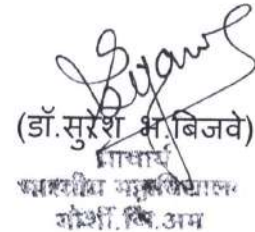 (डॉ.सुरेश भ.बिजवे)
प्राचार्य
भारतीय महाविद्यालय
मोर्शी.जि.अम